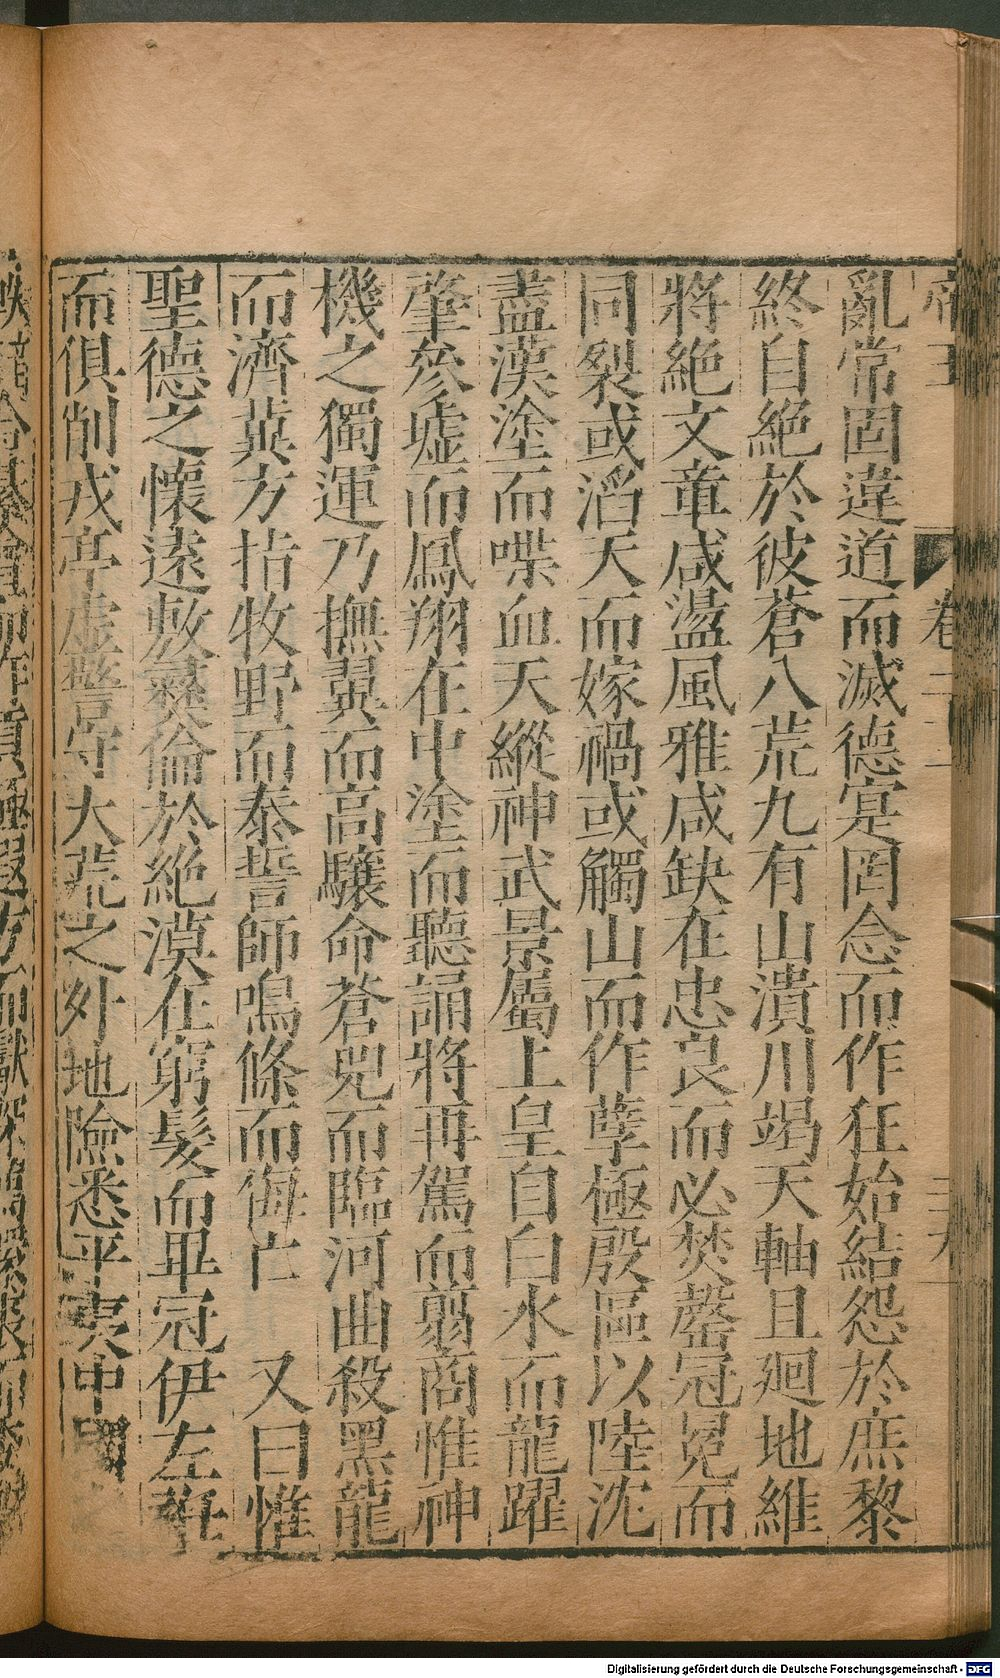 亂常固違道而滅德寔罔念而作狂始結怨於庶黎
終自絕於彼蒼八荒九有山潰川竭天軸且廻地維
將絕文章咸盪風雅咸缺在忠良而必焚罄冠冕而
同裂或滔天而嫁禍或觸山而作孽極殷區以陸沈
盡漢塗而喋血天縱神武景屬上皇自白水而龍躍
肇參墟而鳳翔在中塗而聽誦將再駕而翦商惟神
機之獨運乃撫翼而高驤命蒼兕而臨河曲殺黑龍
而濟冀方指牧野而泰誓師鳴條而侮亡 又曰惟
聖德之懷遠敷彝倫於絕漠在窮髮而畢冠伊左衽
而俱削戎亭虛警守大荒之外地險悉平夷中國
帝王 卷二十二
Digitalisierung gefördert durch die Deutsche Forschungsgemeinschaft - DFG